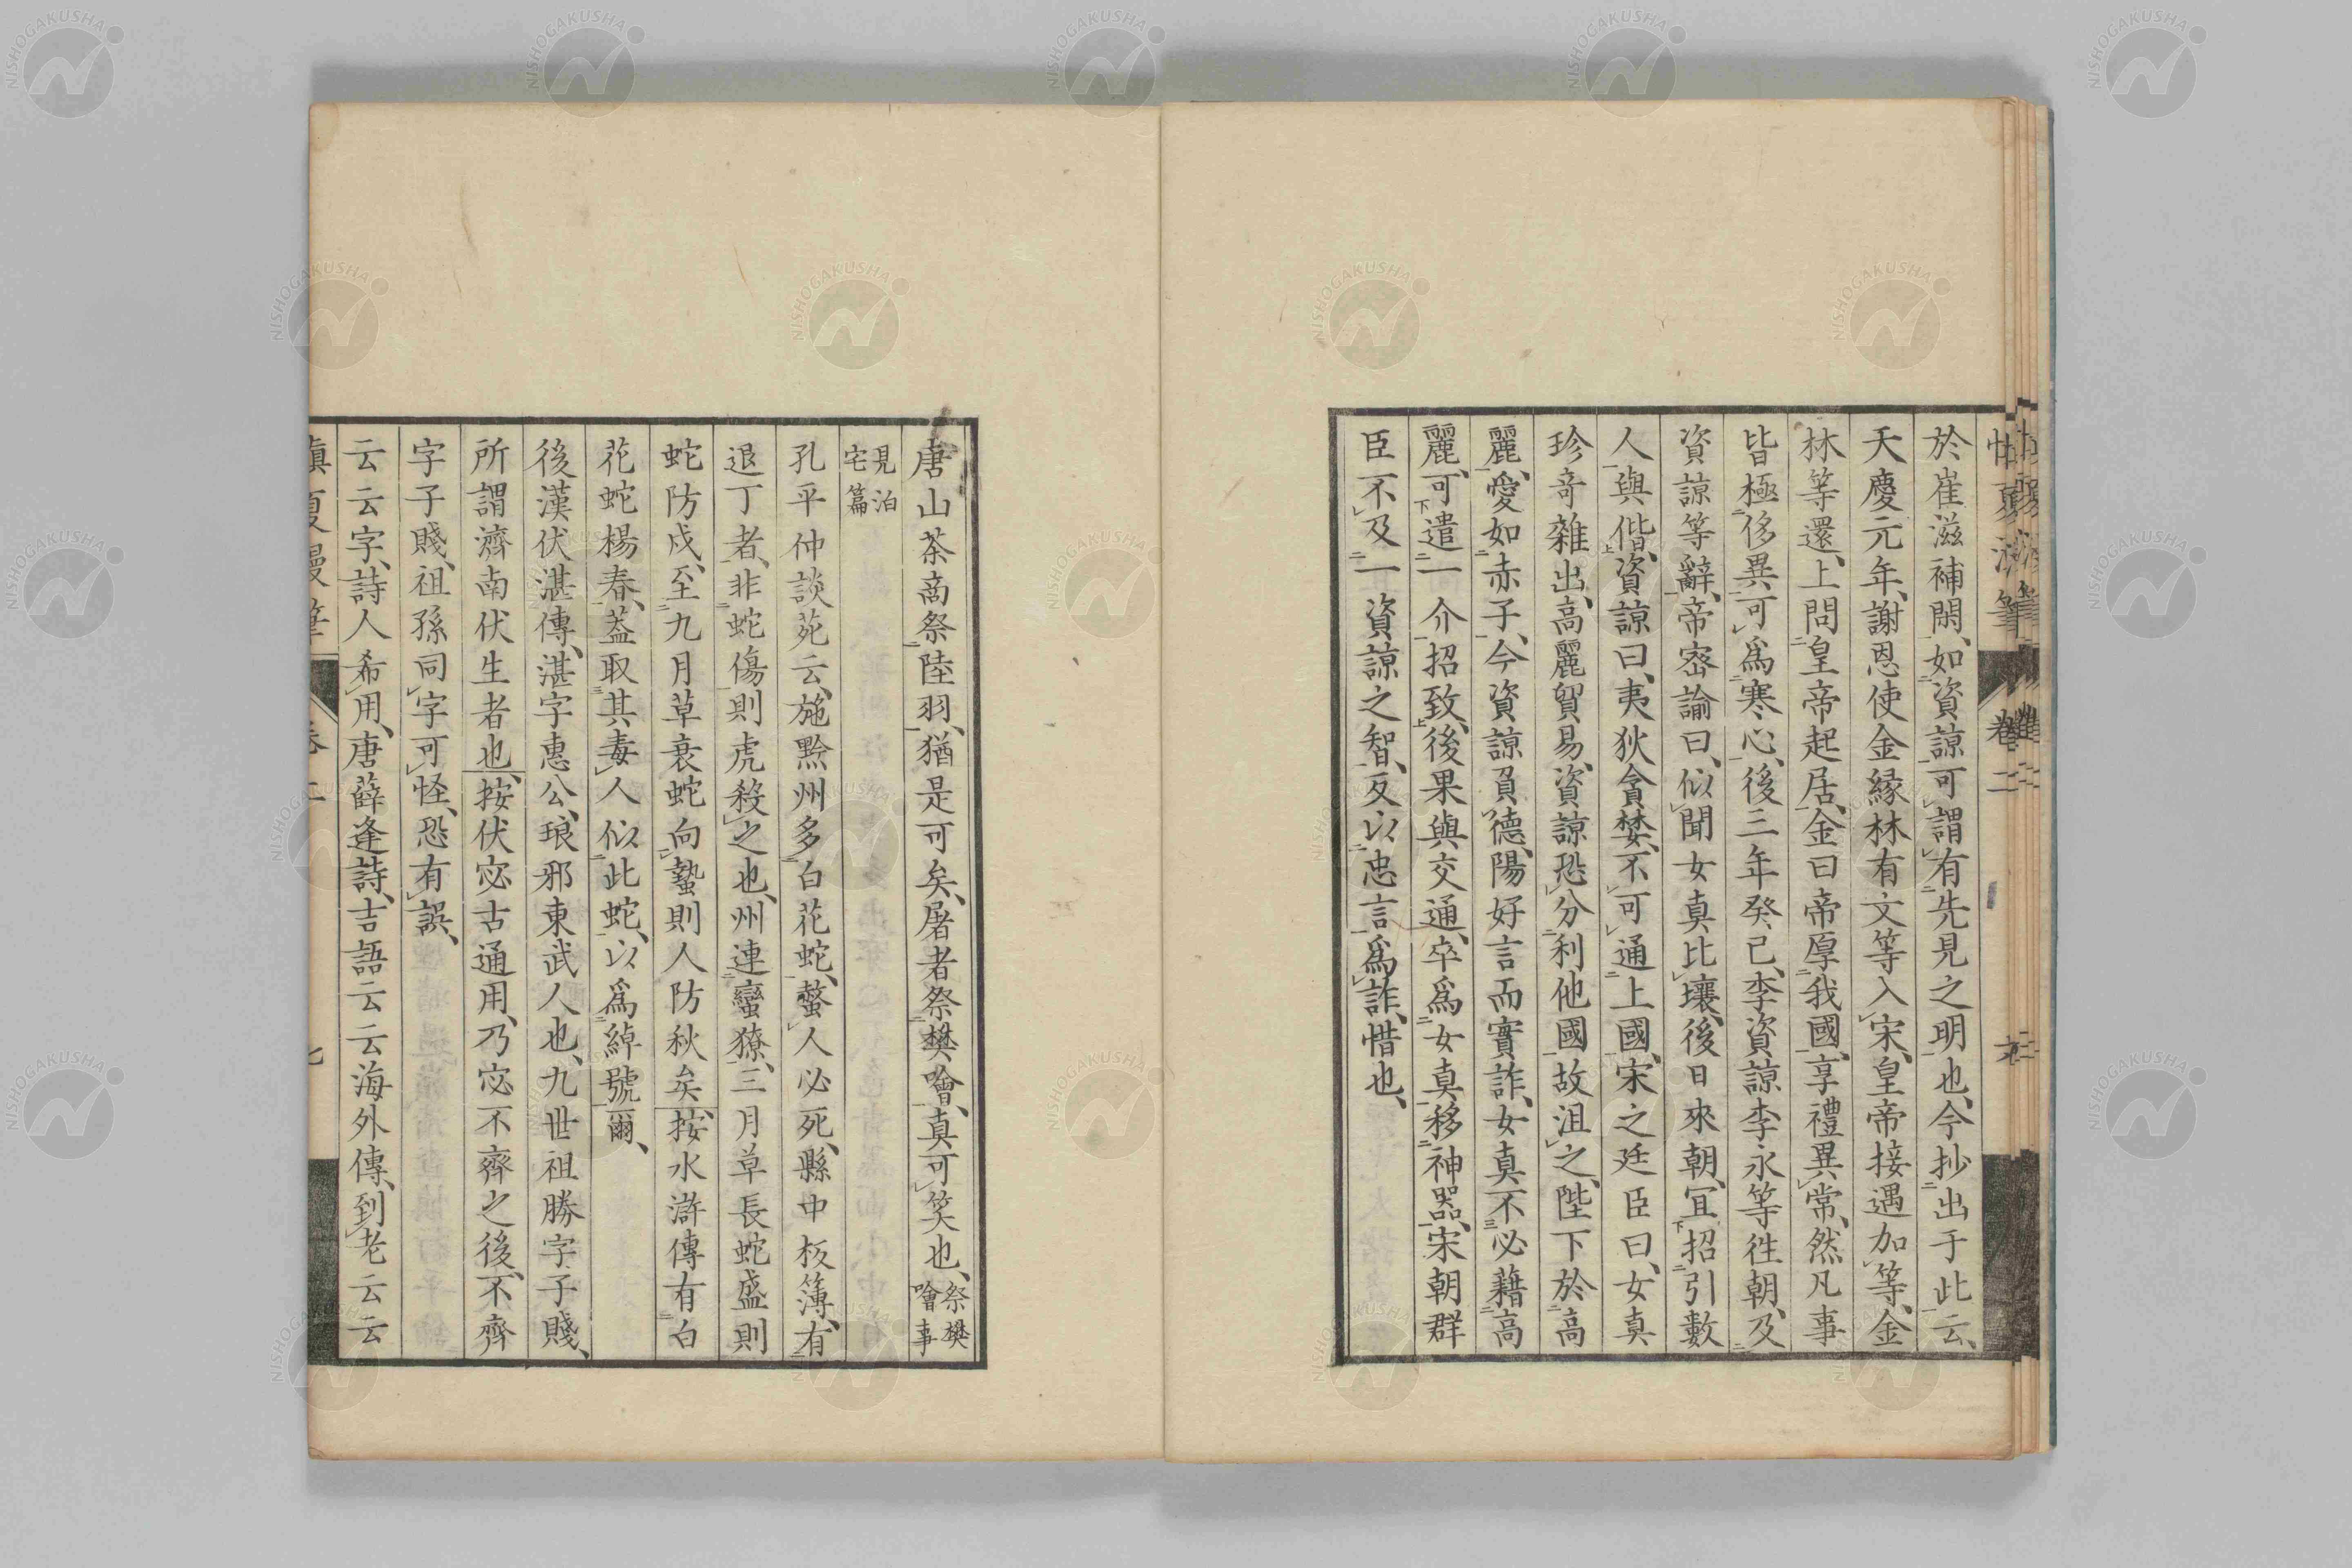 於崔滋補閑、如資諒可謂有先見之明也、今抄出于此云、
天慶元年、謝恩使金縁林有文等入宋、皇帝接遇加等、金
林等還、上問皇帝起居、金曰帝厚我國、享禮異常、然凡事
皆極侈異、可爲寒心、後三年癸巳、李資諒李永等徃朝、及
資諒等辭、帝宻諭曰、似聞女真比壤、後日來朝、宜招引數
人與偕、資諒曰、夷狄貪婪、不可通上國、宋之廷臣曰、女真
珍竒雜出、高麗貿易、資諒恐分利他國故沮之、陛下於高
麗、愛如赤子、今資諒負德、陽好言而實詐、女真不必藉高
麗、可遣一介招致、後果與交通、卒爲女真移神器、宋朝群
臣不及一資諒之智、反以忠言爲詐、惜也、
卷二
唐山茶商祭陸羽、猶是可矣、屠者祭樊噲、真可笑也、祭樊噲事
見泊宅篇
孔平仲談苑云、施黔州多白花蛇、螫人必死、縣中板簿、有
退丁者、非蛇傷則虎殺之也、州連蠻獠、三月草長蛇盛則
蛇防戍、至九月草衰蛇向蟄則人防秋矣、按水滸傳有白
花蛇楊春、葢取其毒人似此蛇、以爲綽號爾、
後漢伏湛傳、湛字惠公、琅邪東武人也、九世祖勝字子賤、
所謂濟南伏生者也、按伏宓古通用、乃宓不齊之後、不齊
字子賤、祖孫同字可怪、恐有誤、
云云字、詩人希用、唐薛逢詩、吉語云云海外傳、到老云云
卷二
NISHOGAKUSHA